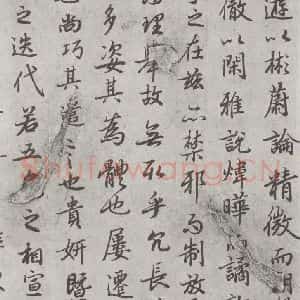 遊以彬蔚論精微而朗
徹以閑雅說煒曄而譎
之在茲亦禁邪而制放
理舉故無取乎冗長
多姿其為體也屢遷
也尚巧其遣言也貴妍暨
之迭代若五色之相宣
Shufawang.CN